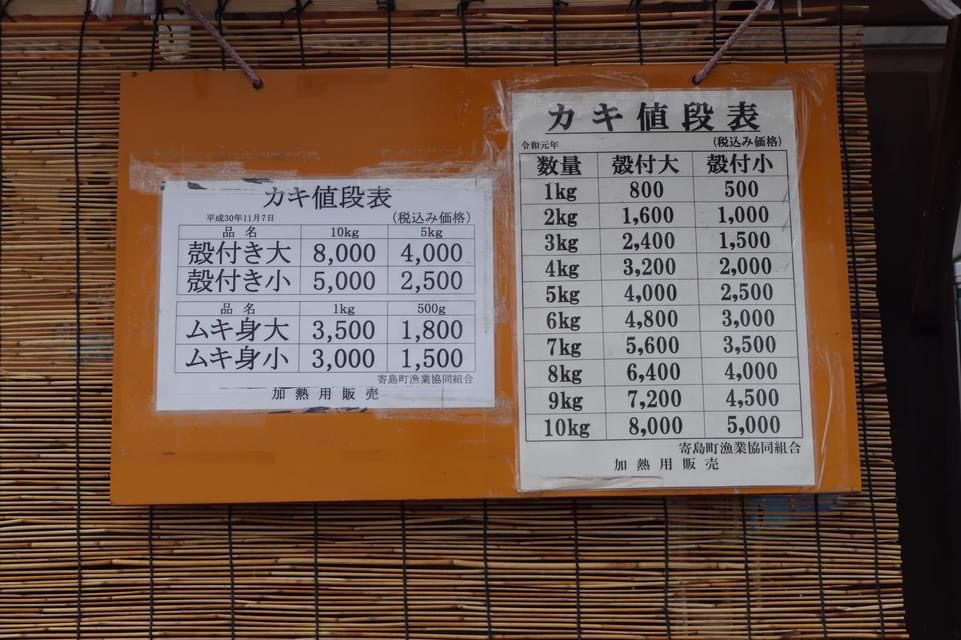 カキ値段表
平成30年11月7日 (税込み価格)
品名 10kg 5kg
殻付き大 8,000 4,000
殻付き小 5,000 2,500
品名 1kg 500g
ムキ身大 3,500 1,800
ムキ身小 3,000 1,500
寄島町漁業協同組合
加熱用販売
カキ値段表
令和元年 (税込み価格)
数量 殻付大 殻付小
1kg 800 500
2kg 1,600 1,000
3kg 2,400 1,500
4kg 3,200 2,000
5kg 4,000 2,500
6kg 4,800 3,000
7kg 5,600 3,500
8kg 6,400 4,000
9kg 7,200 4,500
10kg 8,000 5,000
寄島町漁業協同組合
加熱用販売